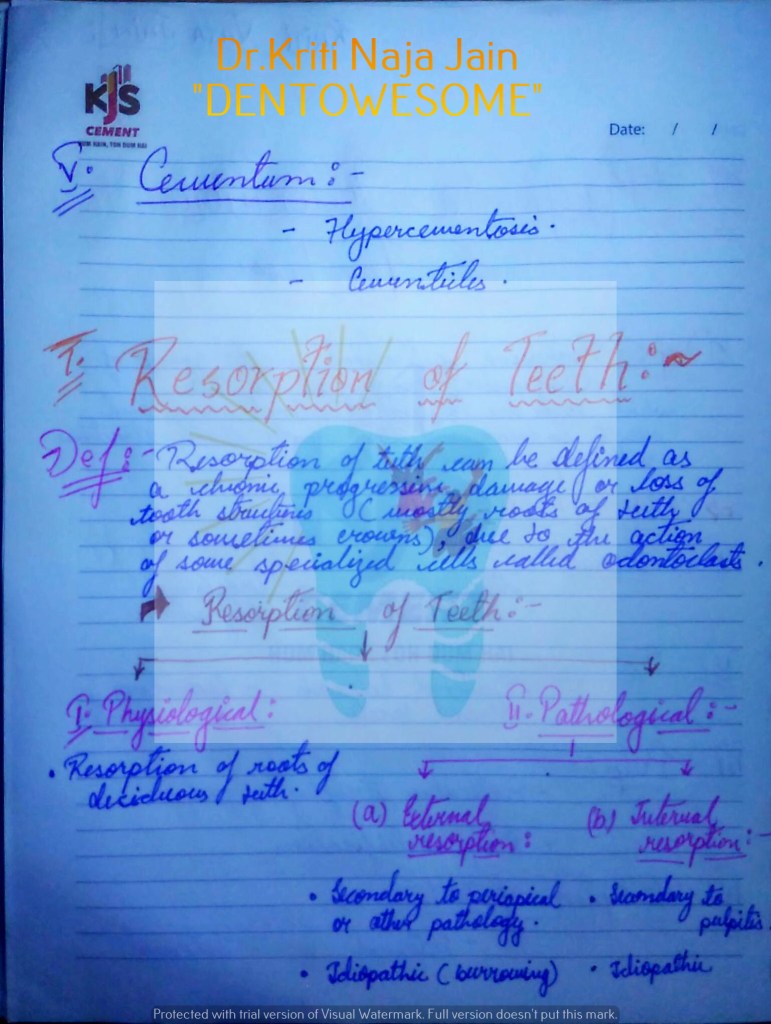 Dr.Kriti Naja Jain
"DENTOWESOME"
KJS
CEMENT
Date: / /
V. Cementum:-
- Hypercementosis.
- Cementicles.
I. Resorption of Teeth:~
Def:- Resorption of teeth can be defined as
a chronic progressive damage or loss of
tooth structures (mostly roots of teeth
or sometimes crowns), due to the action
of some specialized cells called odontoclasts.
Resorption of Teeth:-
I. Physiological:
II. Pathological:-
• Resorption of roots of
deciduous teeth.
(a) External
resorption:
(b) Internal
resorption:-
• Secondary to periapical
or other pathology.
• Secondary to
pulpitis.
• Idiopathic (burrowing)
• Idiopathic
Protected with trial version of Visual Watermark. Full version doesn't put this mark.